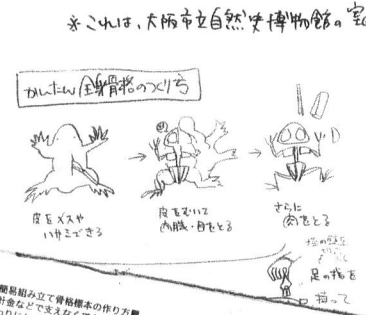 ※これは、大阪市立自然史博物館の
かんたん全身骨格のつくり方
皮をメスや
ハサミできる
皮をむいて
内臓・目をとる
さらに
肉をとる
足の指を
簡易組み立て骨格標本の作り方
針金などで支えなく